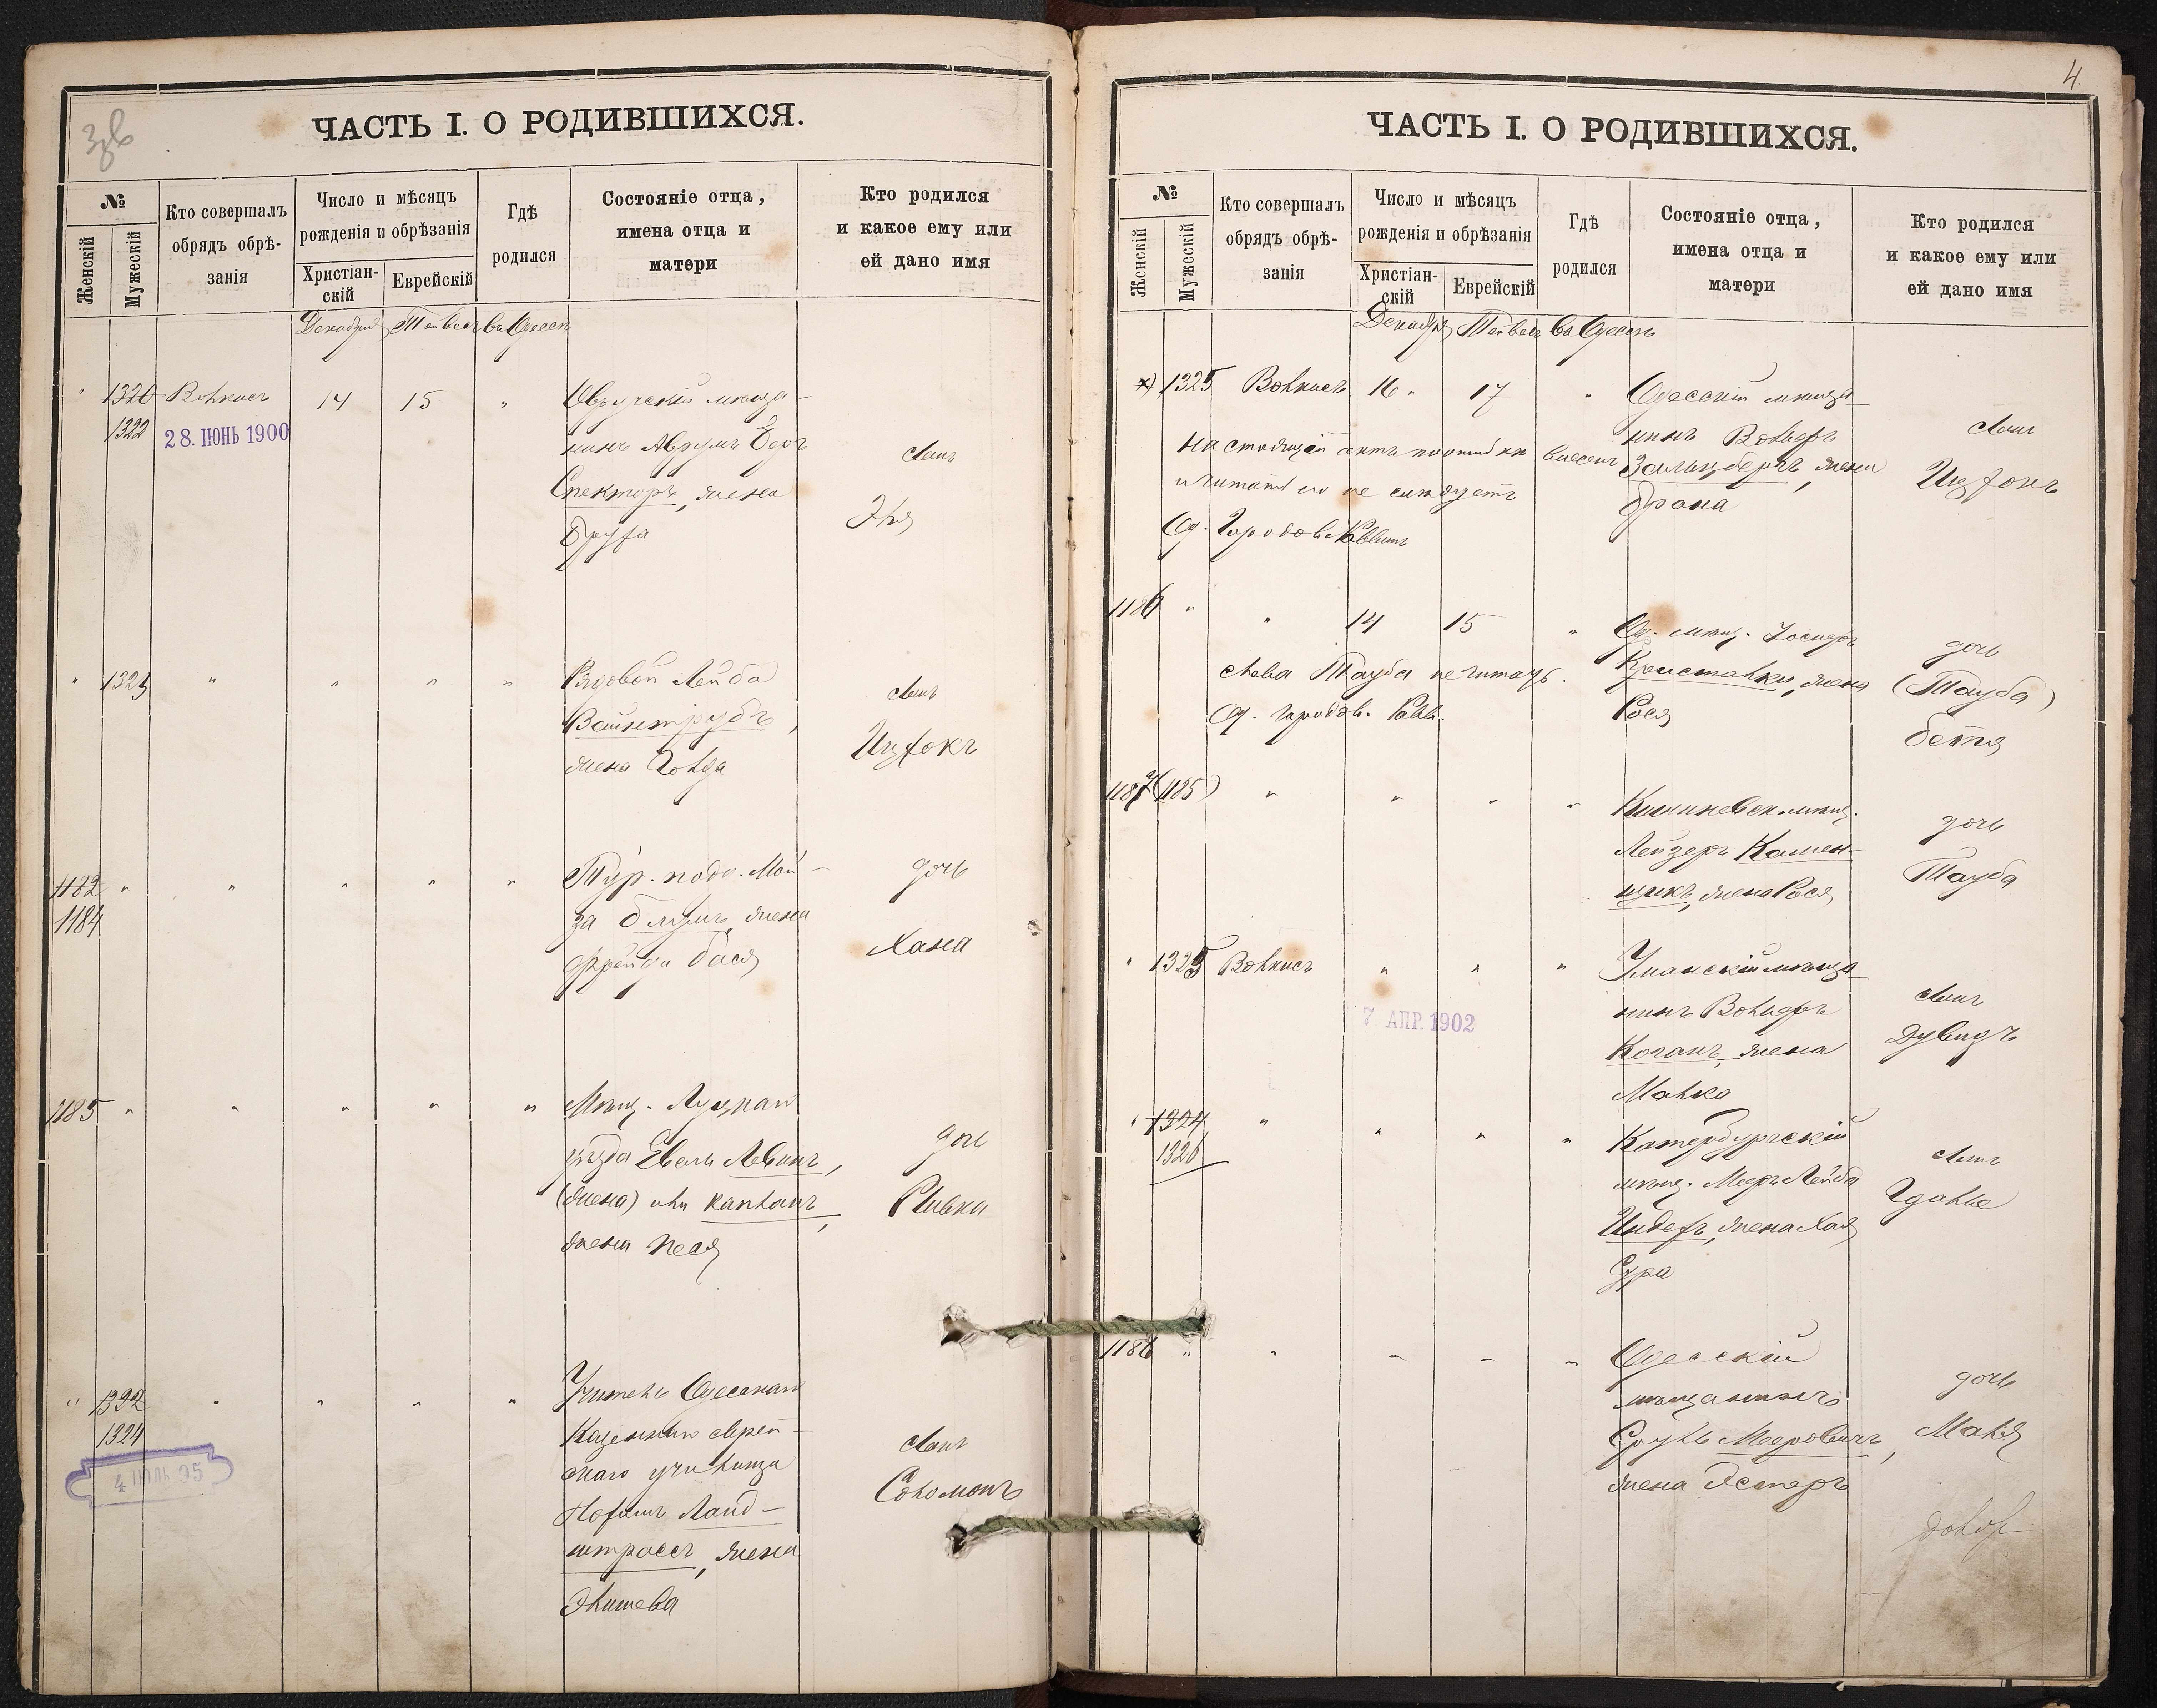 3об
ЧАСТЬ I. О РОДИВШИХСЯ.
№
Женскій
Мужескій
Кто совершалъ
обрядъ обрѣ-
занія
Число и мѣсяцъ
рожденія и обрѣзанія
Христіан-
скій
Еврейскій
Гдѣ
родился
Состояніе отца,
имена отца и
матери
Кто родился
и какое ему или
ей дано имя
Декабря Тейвесъ Въ Одессѣ
" 1320 Волкисъ 14 15 " Овручскій мѣща-
1322 28. ІЮНЬ 1900
нинъ Аврумъ
Спекторъ, жена
Фрума
сынъ
Эля
" 1323 " " " " Рядовой Лейба
Вайнтрубъ,
жена Голда
сынъ
Ицхокъ
1182 " " " " " Тур. подд. Мой-
1184
за Блумъ, жена
Фрейда Бася
дочь
Хана
1185 " " " " " Мѣщ. Луцкаго
уѣзда Евель Левинъ,
(жена) или Капланъ,
жена Песя
дочь
Ривка
" 1322 " " " " Учитель Одесскаго
1324
4 ІЮЛЬ 95
Казеннаго еврей-
скаго училища
Нохимъ Ланд-
штрассъ, жена
Элишева
сынъ
Соломонъ
4.
ЧАСТЬ I. О РОДИВШИХСЯ.
№
Женскій
Мужескій
Кто совершалъ
обрядъ обрѣ-
занія
Число и мѣсяцъ
рожденія и обрѣзанія
Христіан-
скій
Еврейскій
Гдѣ
родился
Состояніе отца,
имена отца и
матери
Кто родился
и какое ему или
ей дано имя
Декабря Тейвесъ Въ Одессѣ
х) 1325 Волкисъ 16 17 " Одесскій мѣща-
нинъ Вольфъ
Зальцбергъ, жена
Брана
сынъ
Ицхокъ
Настоящій актъ поошибкѣ внесенъ
и читать его не слѣдуетъ
Од. Городов. Раввинъ
1186 " " 14 15 " Од. мѣщ. Іосифъ
Кристалки, жена
Рося
дочь
(Тауба)
Бетя
слова Тауба не читать.
Од. Городов. Равв.
1187 (1185) " " " " Кишиневск. мѣщ.
Лейзеръ Камен-
щикъ, жена Рося
дочь
Тауба
" 1325 Волкисъ " " " Уманскій мѣща-
нинъ Вольфъ
Коганъ, жена
Малка
сынъ
Дувидъ
7 АПР. 1902
" 1324 " " " " Катербургскій
1326
мѣщ. Мееръ Лейба
жена Хая
Сура
сынъ
Гдалье
1188 " " " " " Одесскій
мѣщанинъ
Сруль Мееровичъ,
жена Эстеръ
дочь
Маня